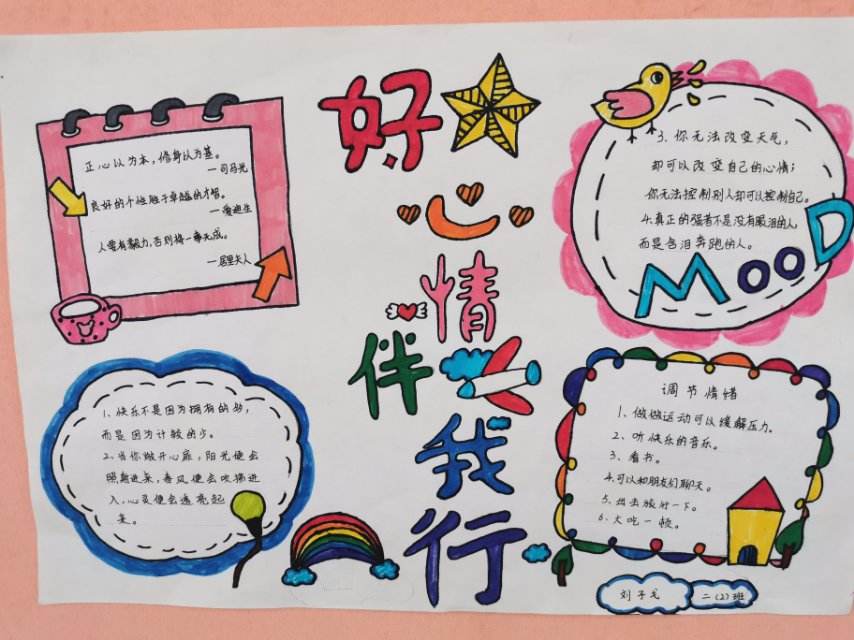 好
心
情
伴
我
行
正心以为本,修身以为基。
—司马光
良好的个性胜于卓越的才智。
—爱迪生
人要有毅力,否则将一事无成。
—居里夫人
1、快乐不是因为拥有的多,
而是因为计较的少。
2、当你敞开心扉,阳光便会
照射进来,春风便会吹拂进
入,心灵便会透亮起
来。
3、你无法改变天气,
却可以改变自己的心情;
你无法控制别人却可以控制自己。
4、真正的强者不是没有眼泪的人,
而是含泪奔跑的人。
MOOD
调节情绪
1、做做运动可以缓解压力。
2、听快乐的音乐。
3、看书。
4、可以和朋友们聊天。
5、出去旅行一下。
6、大吃一顿。
刘子戈
二(2)班